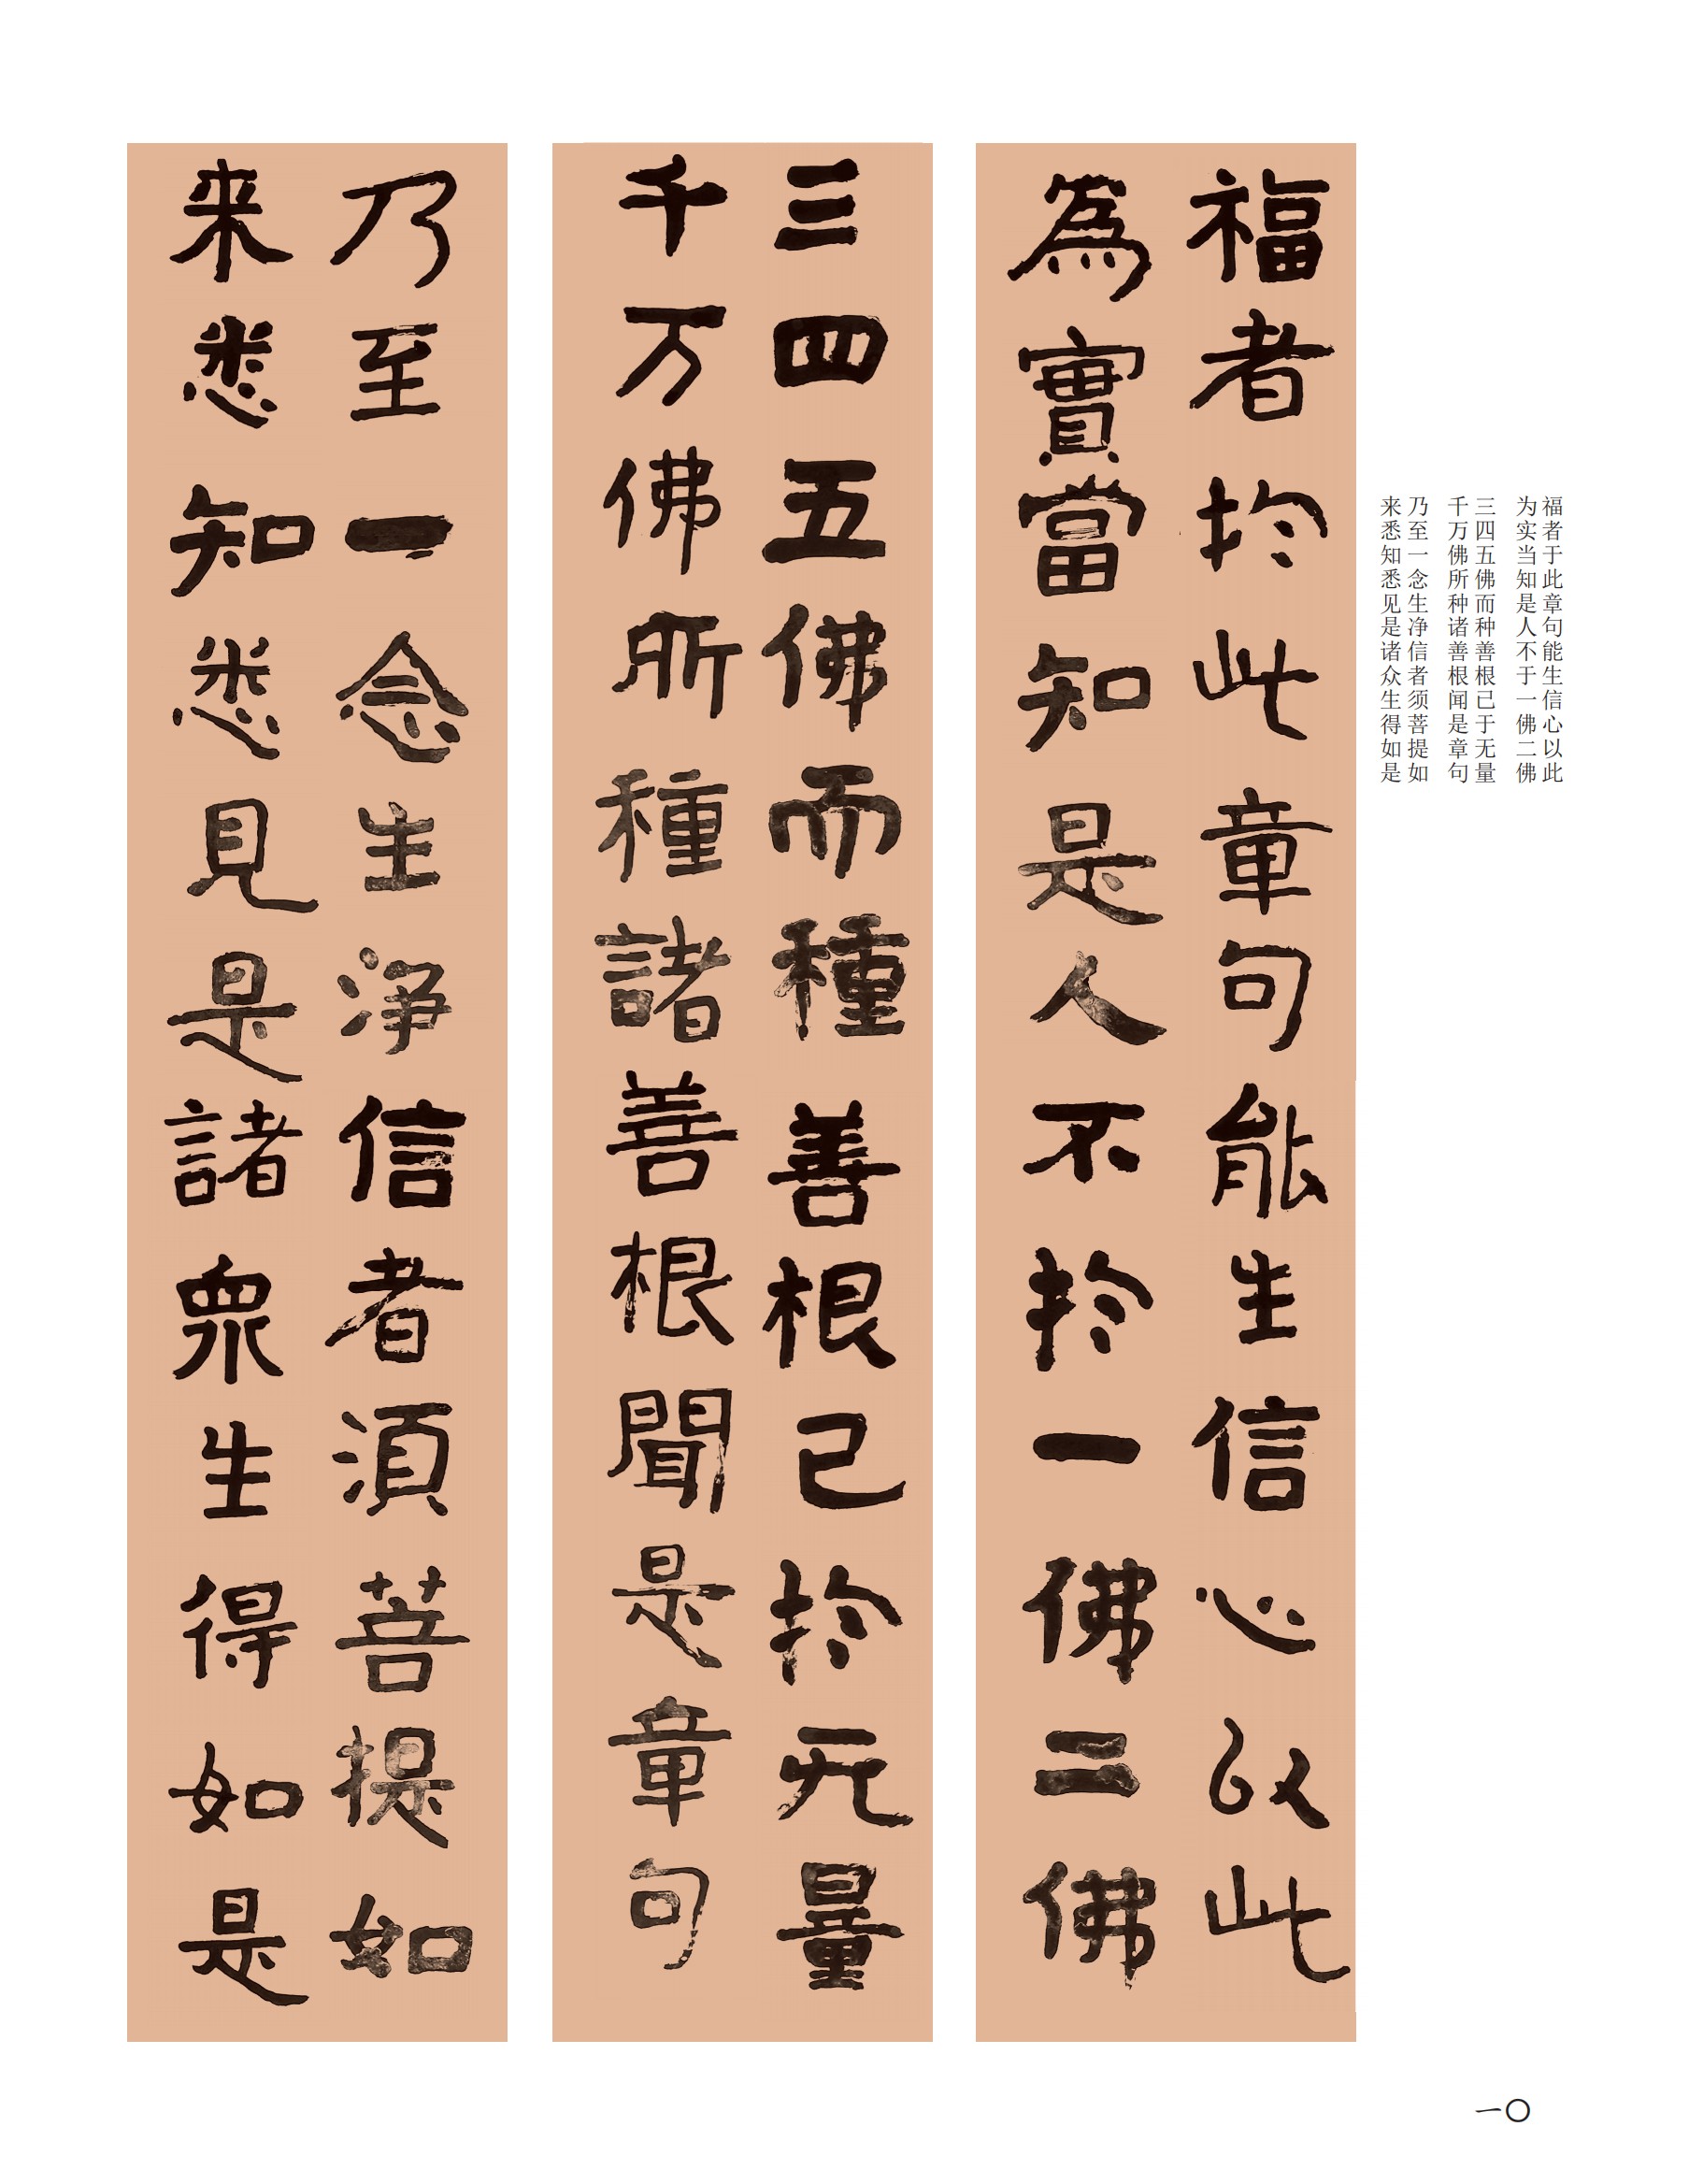 福者於此章句能生信心以此
為實當知是人不於一佛二佛
三四五佛而種善根已於无量
千万佛所種諸善根聞是章句
乃至一念生净信者須菩提如
来悉知悉見是諸眾生得如是
福者于此章句能生信心以此
为实当知是人不于一佛二佛
三四五佛而种善根已于无量
千万佛所种诸善根闻是章句
乃至一念生净信者须菩提如
来悉知悉见是诸众生得如是
一〇